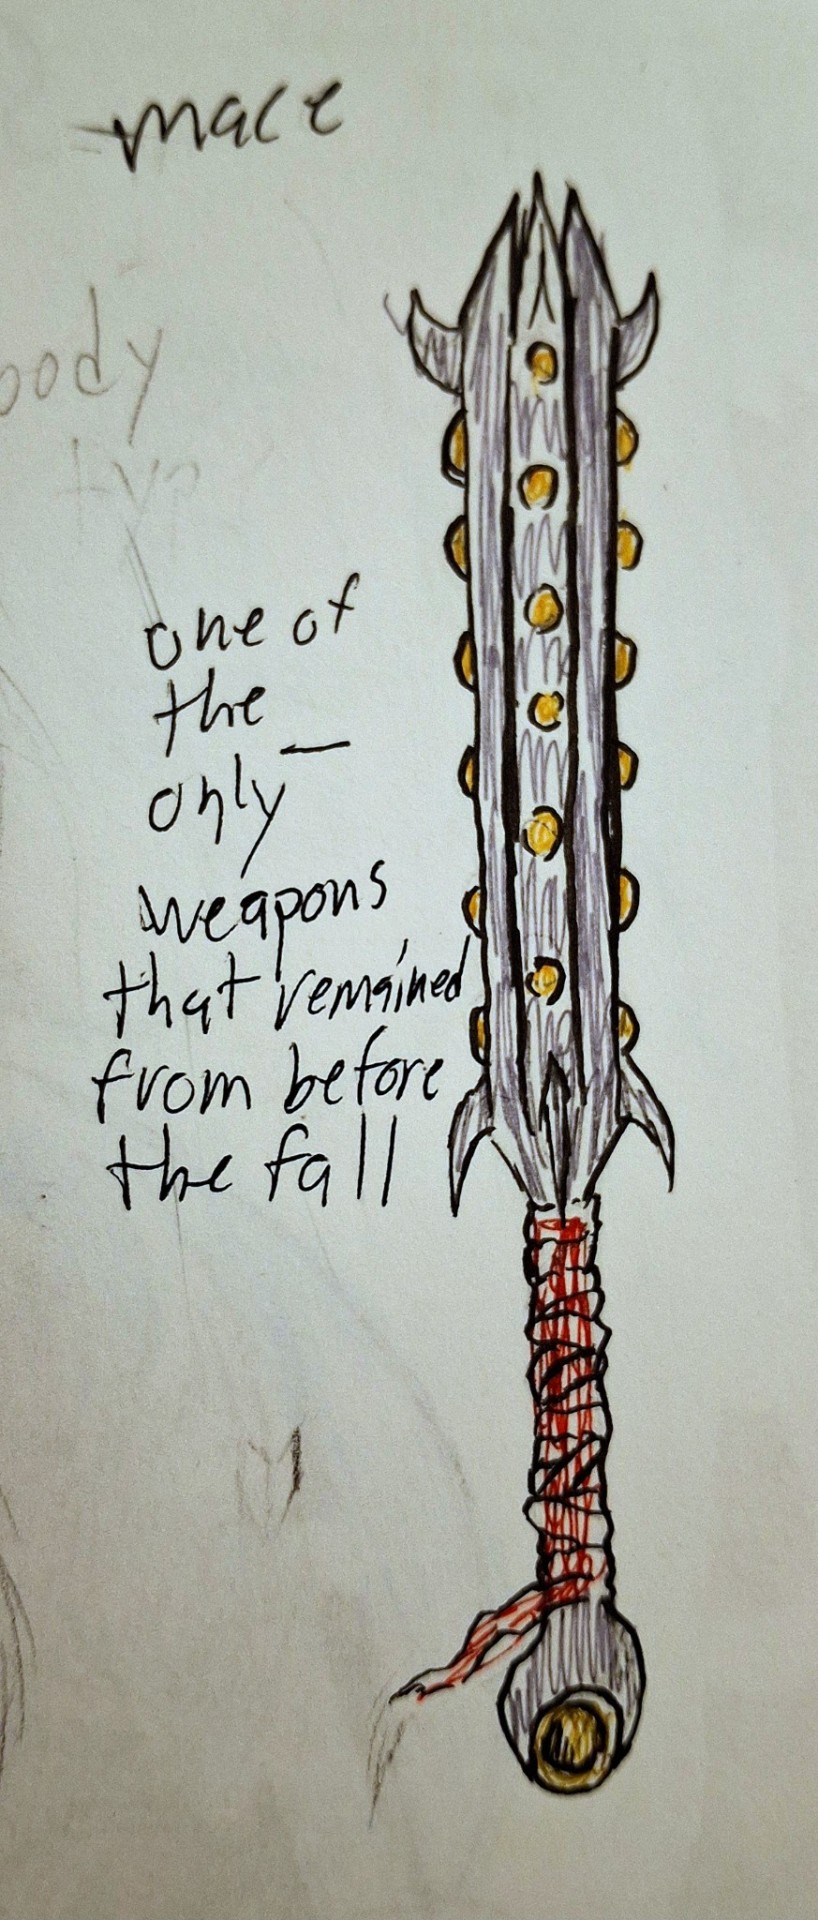 mace
body
typ
one of
the
only
weapons
that remained
from before
the fall